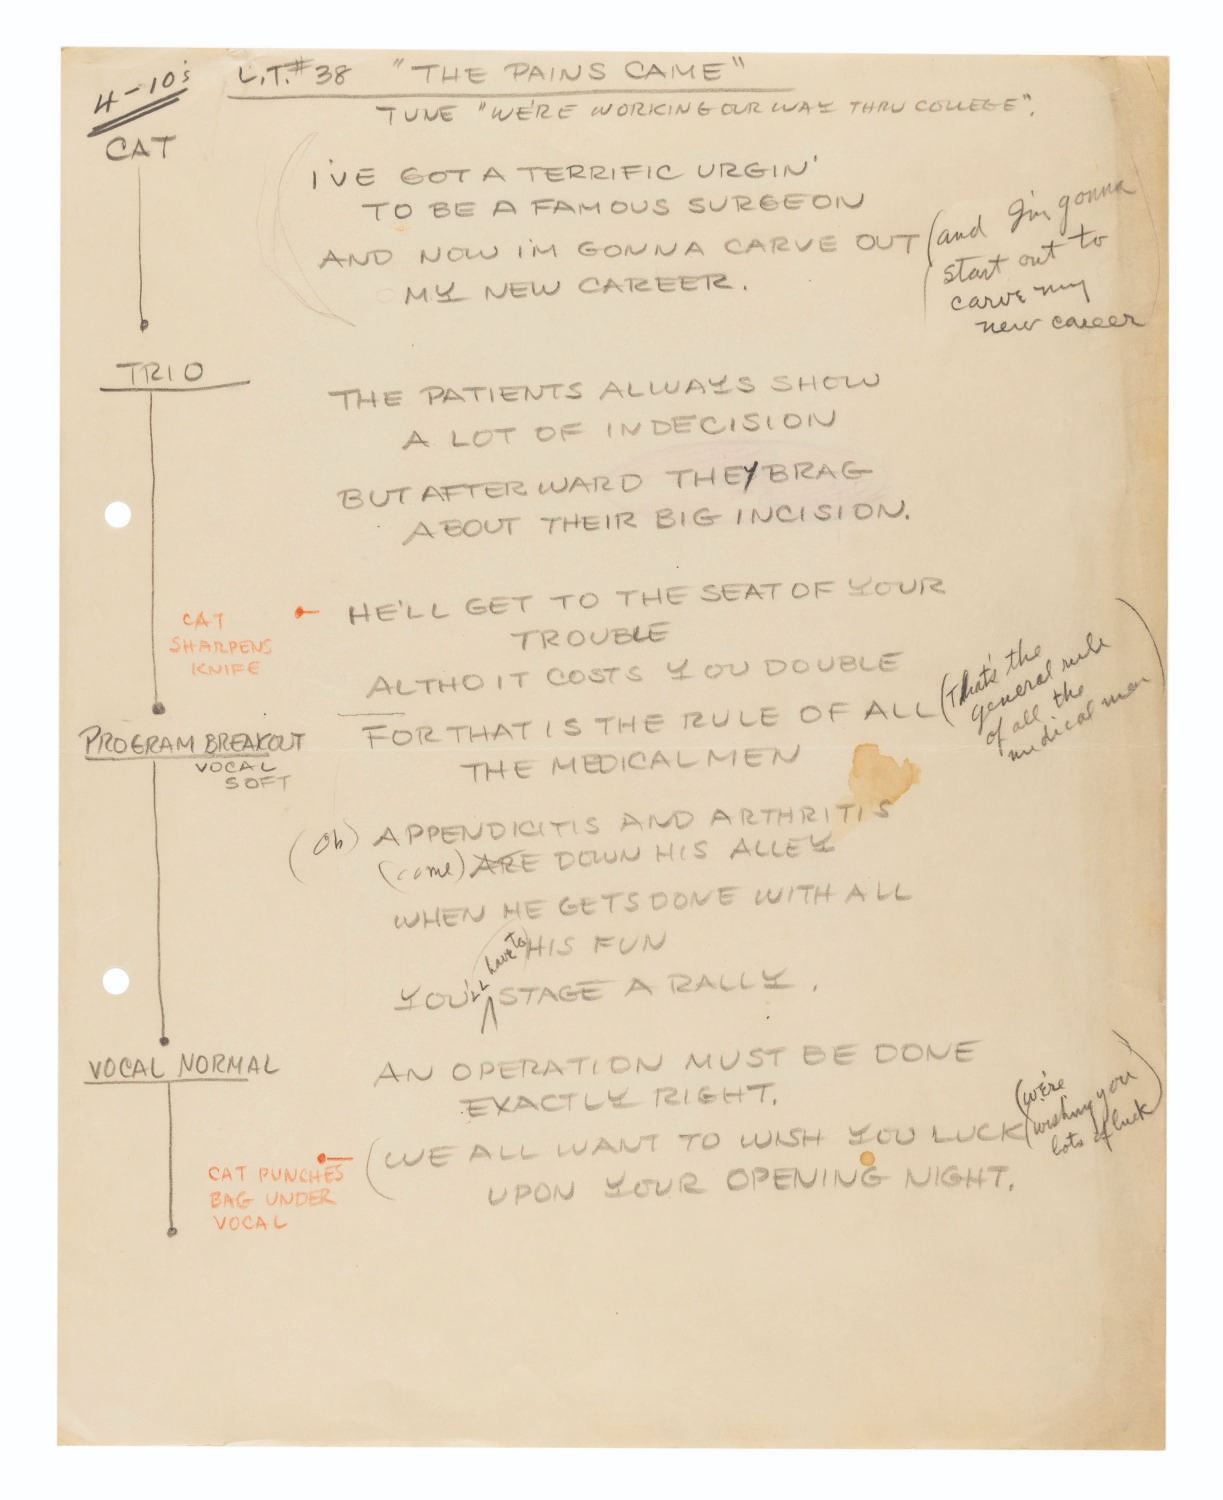 4-10's
L.T.#38 "THE PAINS CAME"
TUNE "WE'RE WORKING OUR WAY THRU COLLEGE".
CAT
I'VE GOT A TERRIFIC URGIN'
TO BE A FAMOUS SURGEON
AND NOW I'M GONNA CARVE OUT
MY NEW CAREER.
(and I'm gonna
start out to
carve my
new career
TRIO
THE PATIENTS ALWAYS SHOW
A LOT OF INDECISION
BUT AFTERWARD THEY BRAG
ABOUT THEIR BIG INCISION.
CAT
SHARPENS
KNIFE
HE'LL GET TO THE SEAT OF YOUR
TROUBLE
ALTHO IT COSTS YOU DOUBLE
FOR THAT IS THE RULE OF ALL
THE MEDICAL MEN
(That's the
general rule
of all the
medical men)
PROGRAM BREAKOUT
VOCAL
SOFT
(Oh) APPENDICITIS AND ARTHRITIS
(come) ARE DOWN HIS ALLEY
WHEN HE GETS DONE WITH ALL
HIS FUN
YOU'LL have to STAGE A RALLY.
VOCAL NORMAL
AN OPERATION MUST BE DONE
EXACTLY RIGHT.
(WE ALL WANT TO WISH YOU LUCK
UPON YOUR OPENING NIGHT.
(we're
wishing you
lots of luck)
CAT PUNCHES
BAG UNDER
VOCAL